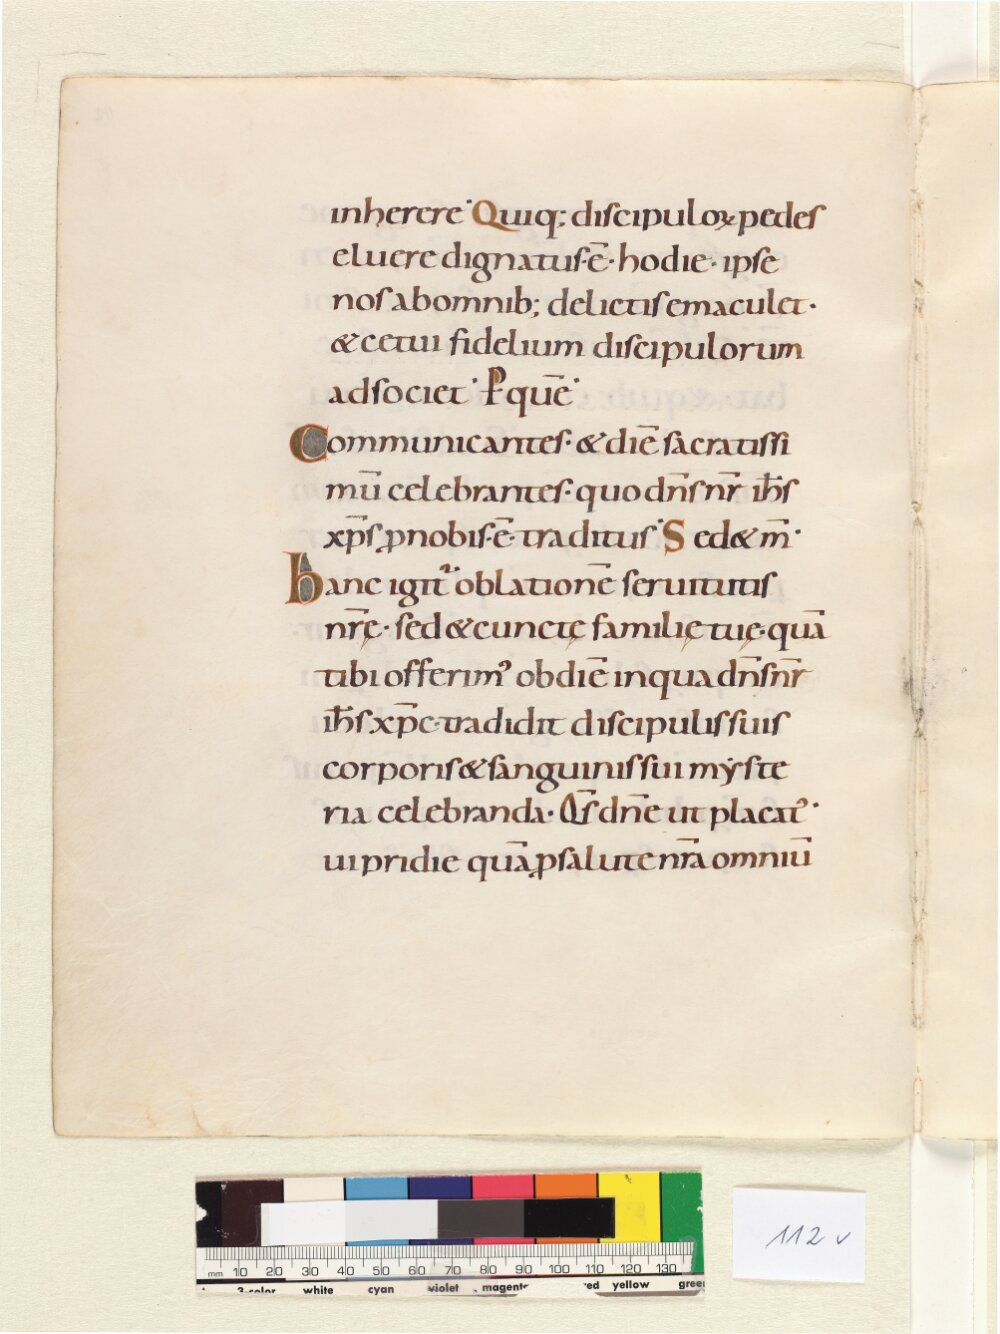 inherere· Quiq; discipuloꝝ pedes
eluere dignatus·ē· hodie· ipse
nos abomnib; delictis emaculet·
& cetui fidelium discipulorum
adsociet· P quē·
Communicantes· & diē sacratissi
mū celebrantes· quo dn̄s nr̄ ih̄s
xp̄s ꝓnobis·ē· traditus· Sed & m̄·
hanc igit᷑ oblationē seruitutis
nr̄ę· sed & cunctę familię tuę· quā
tibi offerimꝰ ob diē inqua dn̄s nr̄
ih̄s xp̄c· tradidit discipulis suis
corporis & sanguinis sui mẏste
ria celebranda· Qs̄ dn̄e ut placatꝰ·
ui pridie quā ꝓsalute nr̄a omniū
mm 10 20 30 40 50 60 70 80 90 100 110 120 130
3-color white cyan violet magenta red yellow green
112 v